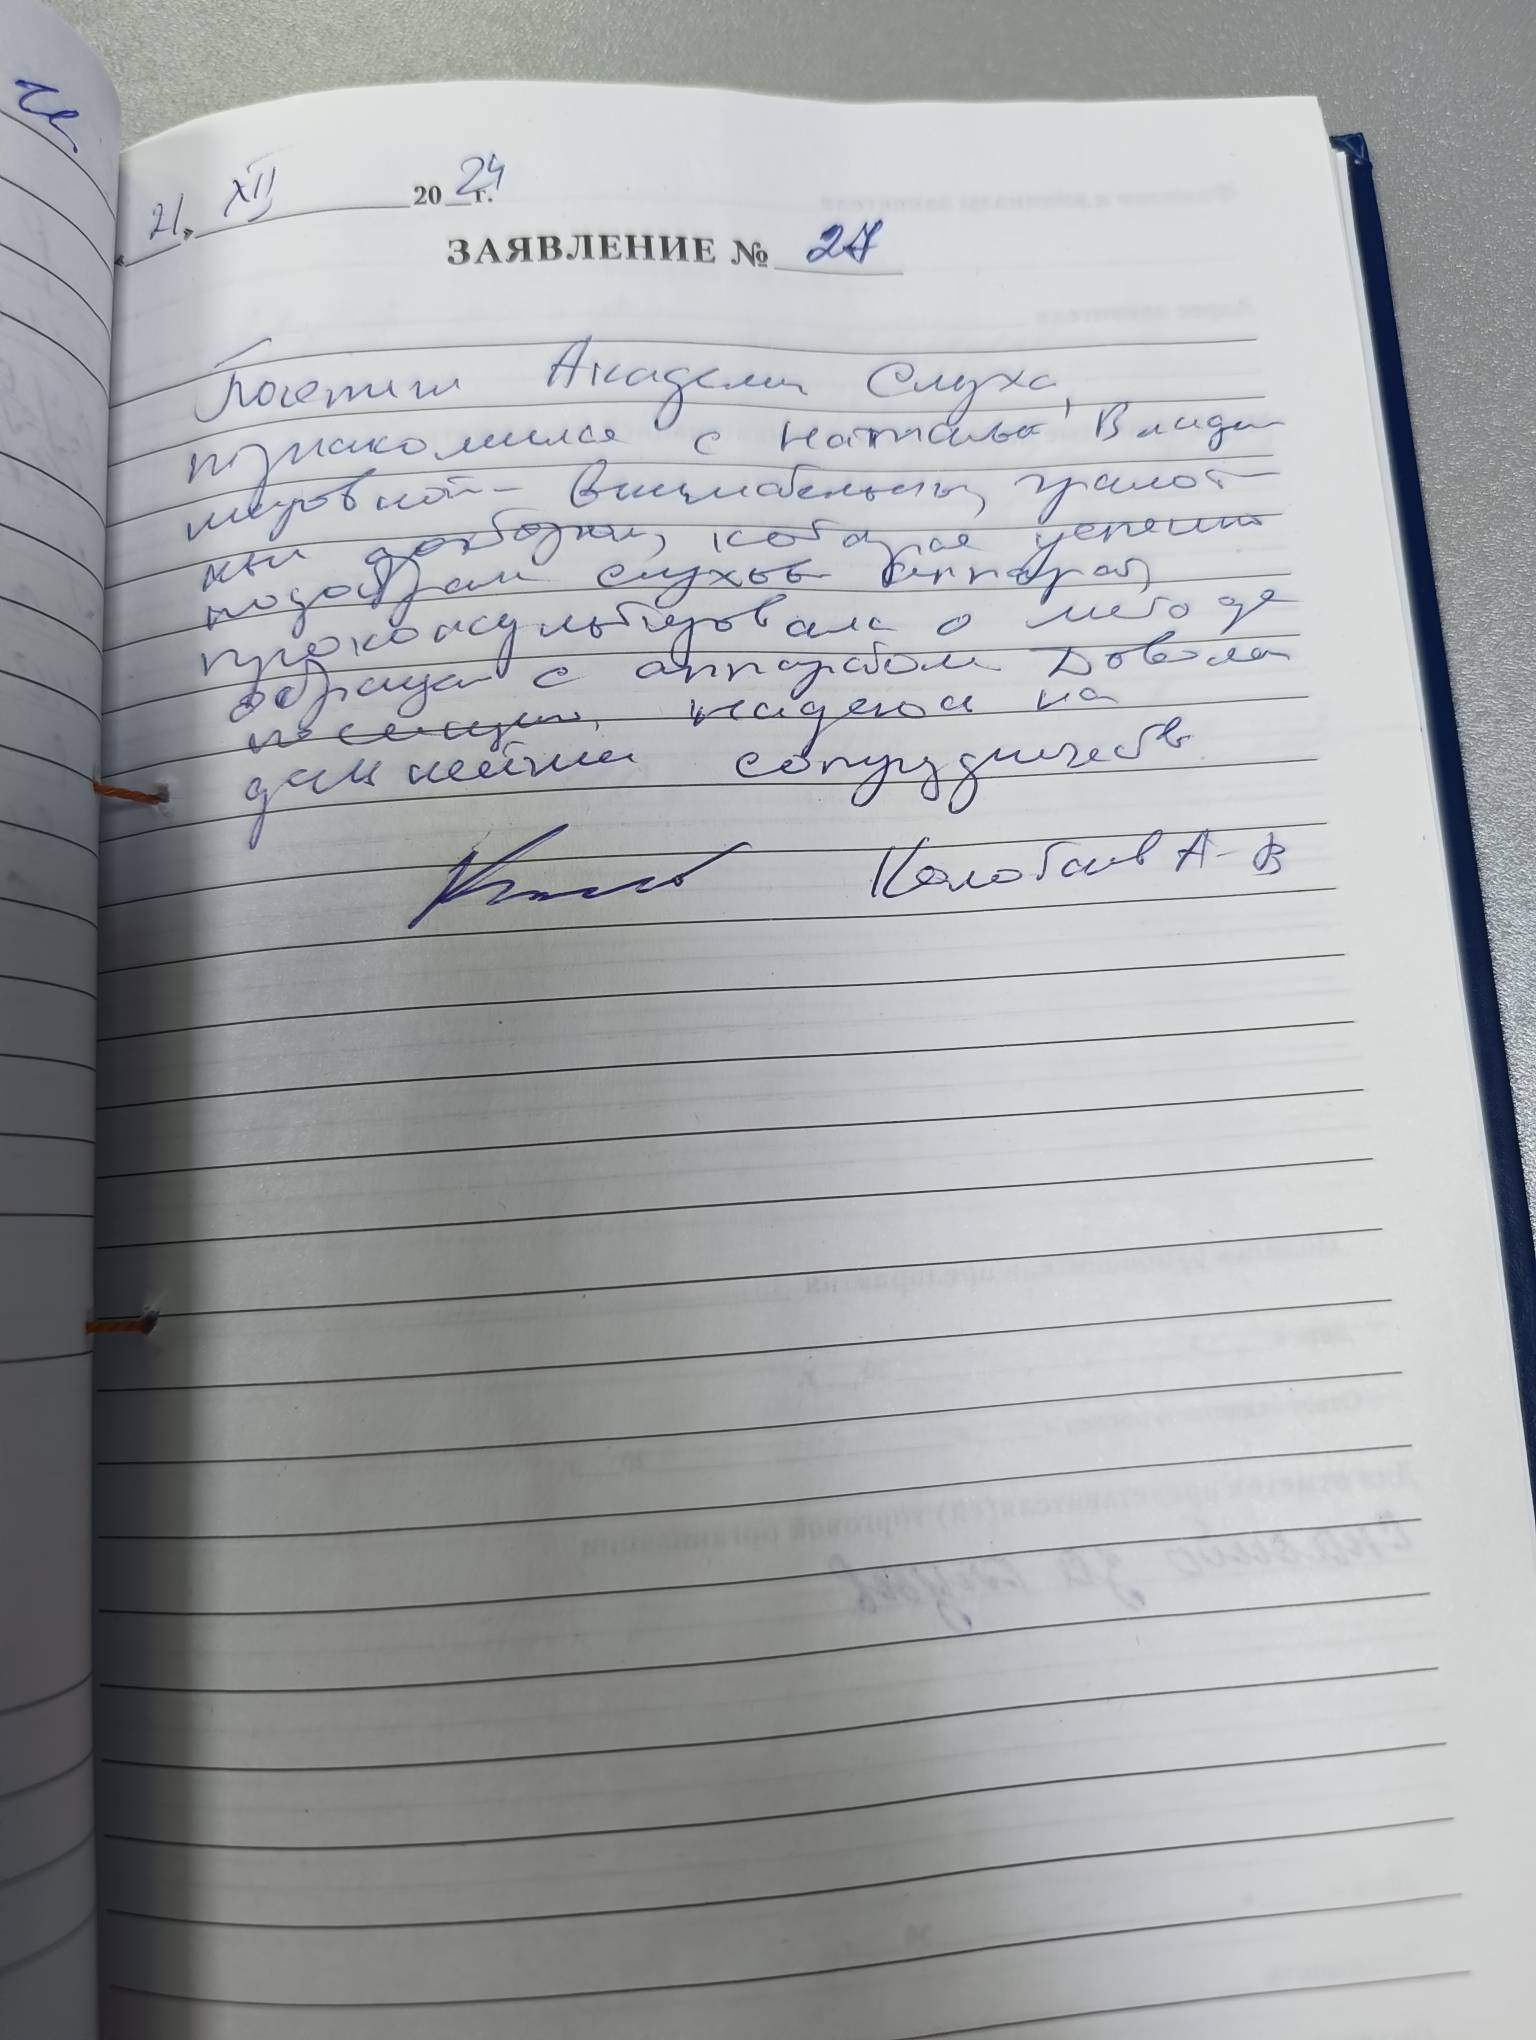 21. XII 2024 г.
ЗАЯВЛЕНИЕ № 27
Посетил Академи Слуха,
познакомился с Натальей Влади
мировной - внимательным, грамот
ным доктором, которая успешно
подобрала слуховой аппарат,
проконсультировала о методе
обращен с аппаратом Доволен
посещением, надеюсь на
дальнейшее сотрудничество
Колобаев А. В